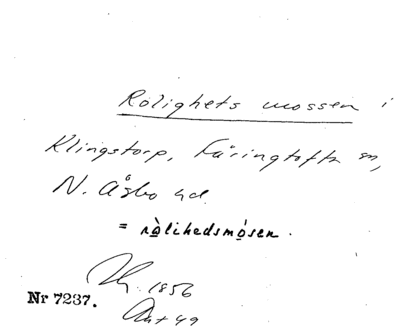 Rolighets mossen i
Klingstorp, Färingtofta sn,
N. Åsbo hd.
= ròlihedsmòsen.
1856
Nr 7237.
49